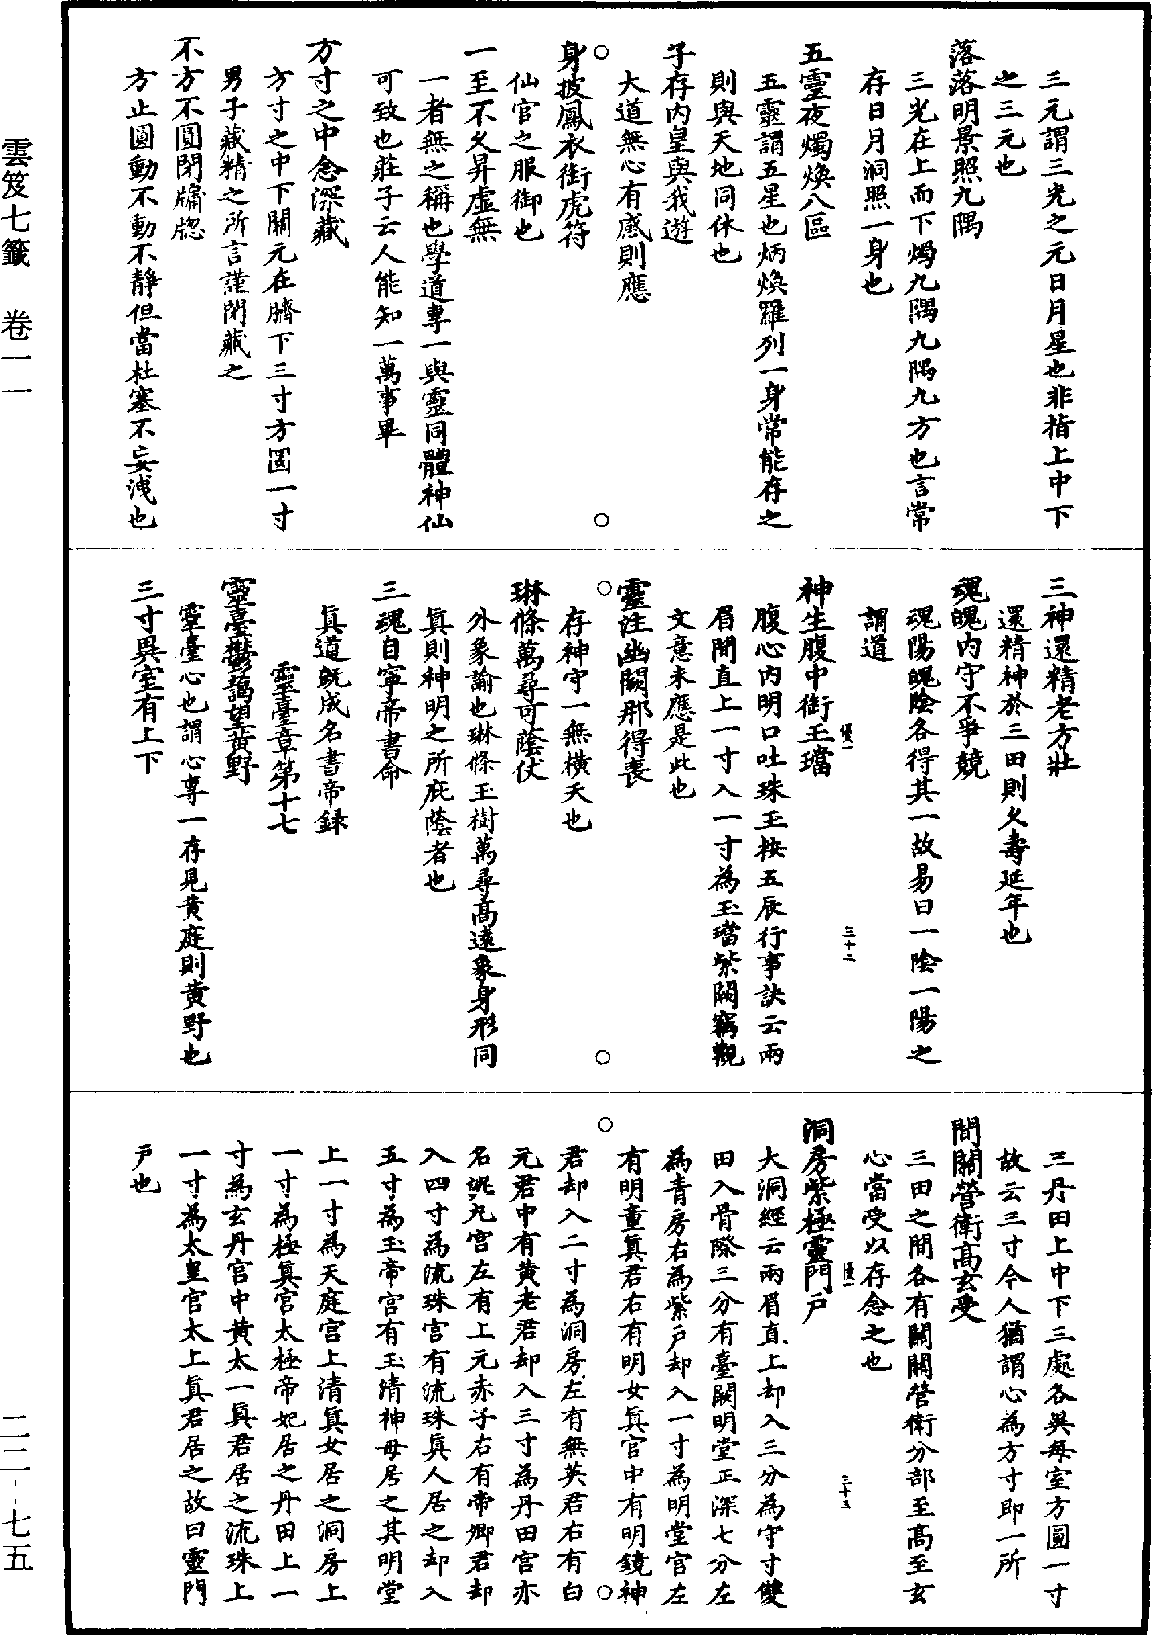 雲笈七籤　卷一一
三元謂三光之元日月星也非指上中下
之三元也
落落明景照九隅
三光在上而下燭九隅九隅九方也言常
存日月洞照一身也
五靈夜燭煥八區
五靈謂五星也炳煥羅列一身常能存之
則與天地同休也
子存內皇與我遊
大道無心有感則應
身披鳳衣銜虎符
仙官之服御也
一至不久昇虛無
一者無之稱也學道專一與靈同體神仙
可致也莊子云人能知一萬事畢
方寸之中念深藏
方寸之中下關元在臍下三寸方圓一寸
男子藏精之所言謹閉藏之
不方不圓閉牖牕
方止圓動不動不靜但當杜塞不妄洩也
三神還精老方壯
還精神於三田則久壽延年也
魂魄內守不爭競
魂陽魄陰各得其一故易曰一陰一陽之
謂道
三十二
神生腹中銜玉璫
腹心內明口吐珠玉按五辰行事訣云兩
眉間直上一寸入一寸為玉璫紫闕竊觀
文意未應是此也
靈注幽闕那得喪
存神守一無橫夭也
琳條萬尋可蔭仗
外象諭也琳條玉樹萬尋高遠象身形同
真則神明之所庇蔭者也
三魂自寧帝書命
真道既成名書帝録
靈臺章第十七
靈臺鬱藹望黃野
靈臺心也謂心專一存見黃庭則黃野也
三寸異室有上下
三丹田上中下三處各異每室方圓一寸
故云三寸今人猶謂心為方寸即一所
間關營衛高玄受
三田之間各有關關營衛分部至高至玄
心當受以存念之也
三十三
洞房紫極靈門戶
大洞經云兩眉直上却入三分為守寸雙
田入骨際三分有臺闕明堂正深七分左
為青房右為紫戶却入一寸為明堂宮左
有明童真君右有明女真官中有明鏡神
君却入二寸為洞房左有無英君右有白
元君中有黃老君却入三寸為丹田宮亦
名泥丸宮左有上元赤子右有帝卿君却
入四寸為流珠宮有流珠真人居之却入
五寸為玉帝宮有玉清神母居之其明堂
上一寸為天庭宮上清真女居之洞房上
一寸為極真宮太極帝妃居之丹田上一
寸為玄丹宮中黃太一真君居之流珠上
一寸為太皇宮太上真君居之故曰靈門
戶也
二二—七五